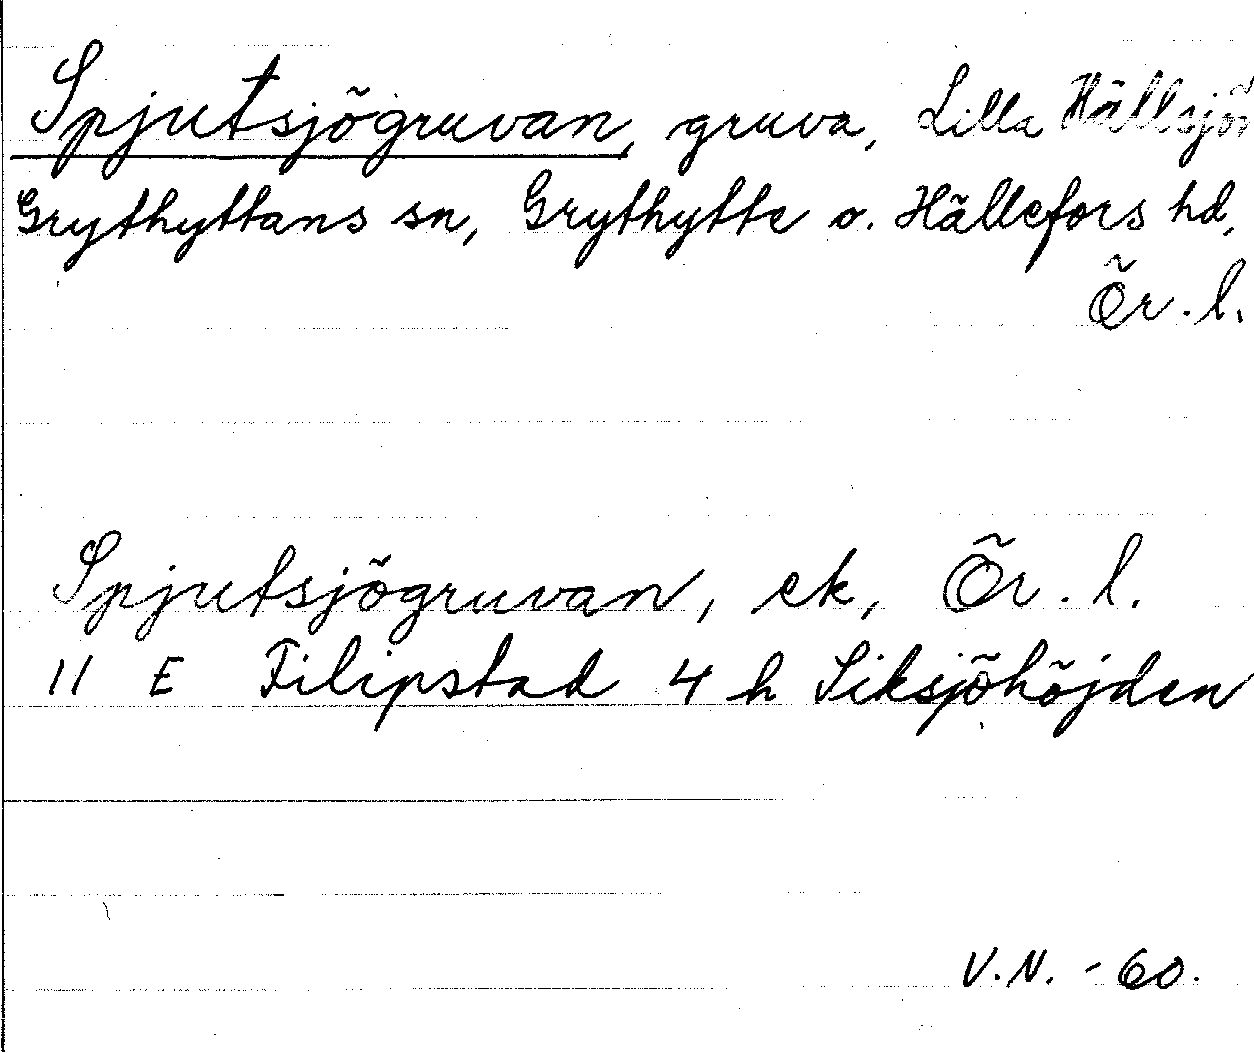 Spjutsjögruvan, gruva, Lilla Hällsjön
Grythyttans sn, Grythytte o. Hällefors hd,
Ör. l.
Spjutsjögruvan, ek, Ör. l.
11 E Filipstad 4 h Siksjöhöjden
V.N. -60.